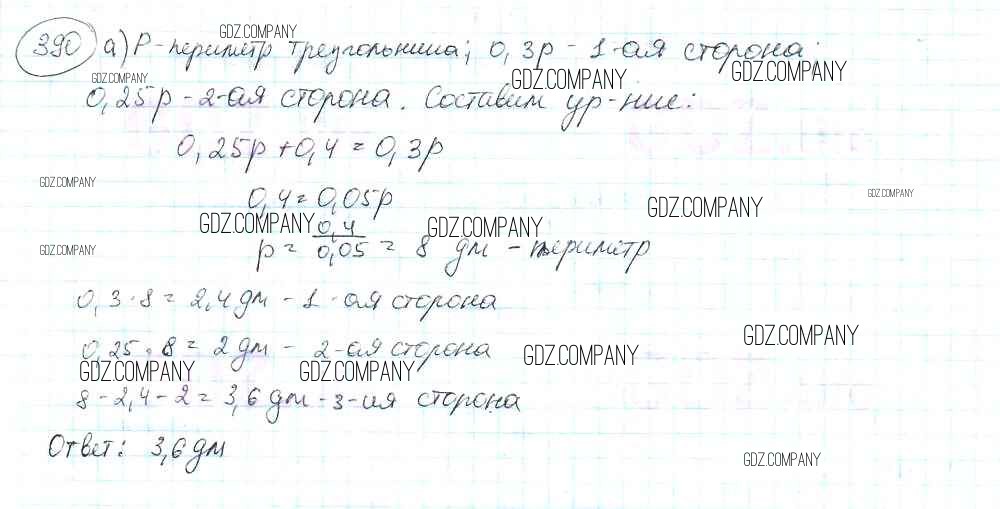 GDZ.COMPANY
390 а) P - периметр треугольника; 0,3p - 1-ая сторона;
GDZ.COMPANY GDZ.COMPANY GDZ.COMPANY
0,25p - 2-ая сторона. Составим ур-ние:
0,25p + 0,4 = 0,3p
GDZ.COMPANY GDZ.COMPANY
0,4 = 0,05p
GDZ.COMPANY GDZ.COMPANY GDZ.COMPANY
GDZ.COMPANY p = 0,4/0,05 = 8 дм - периметр
0,3 · 8 = 2,4 дм - 1-ая сторона
GDZ.COMPANY
0,25 · 8 = 2 дм - 2-ая сторона GDZ.COMPANY
GDZ.COMPANY GDZ.COMPANY
8 - 2,4 - 2 = 3,6 дм - 3-ия сторона
Ответ: 3,6 дм
GDZ.COMPANY